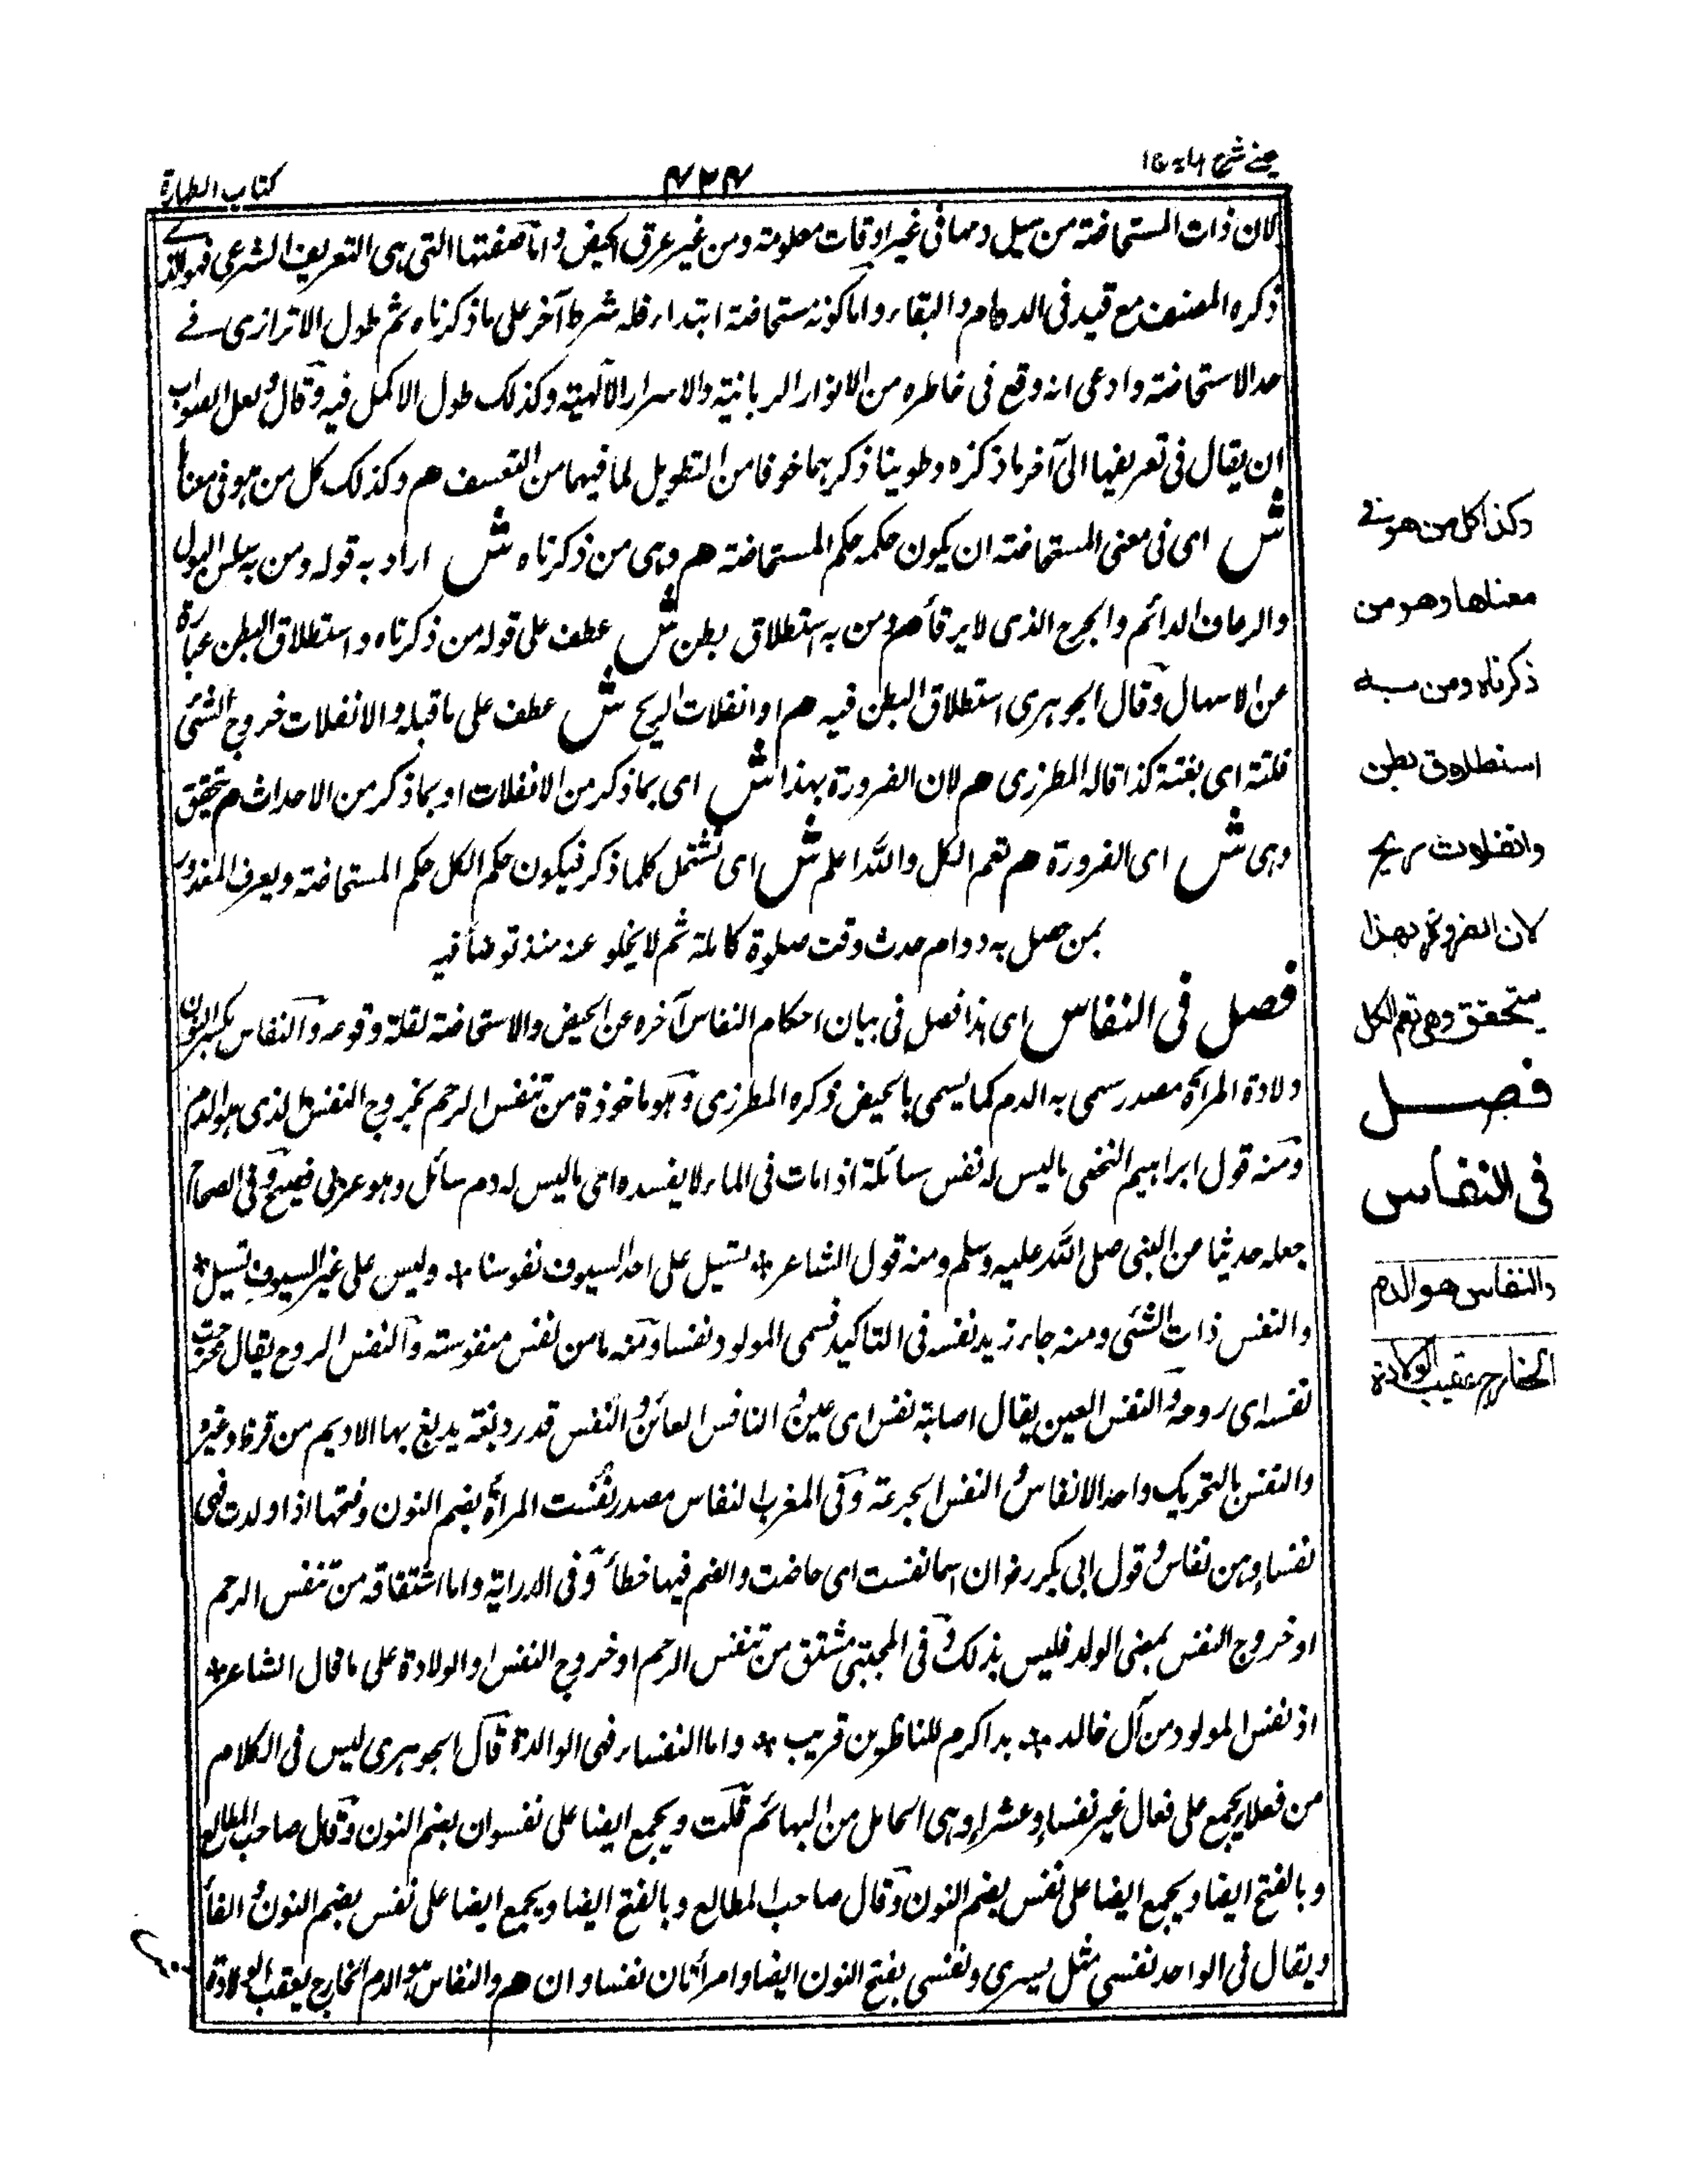 عینی شرح ہدایہ
٤٢٤
كتاب الطهارة
لان ذات المستحاضة من يسيل دمها فى غير اوقات معلومة ومن غير عرق الحيض واما صفتها التى هى التعريف الشرعى فهو الذے
ذكره المصنف مع قيد فى الدوام والبقاء واما كونه مستحاضة ابتداء فله شرط آخر على ما ذكرناه ثم طول الاترازى فے
حد الاستحاضة وادعى انه وقع فى خاطره من الانوار الربانية والاسرار الالهية وكذلك طول الاكمل فيه وقال ولعل الصواب
ان يقال فى تعريفها الى آخر ما ذكره وطوينا ذكرهما خوفا من التطويل لما فيهما من التعسف هم وكذلك كل من هو فى معناها
ش اى فى معنى المستحاضة ان يكون حكمه حكم المستحاضة هم وهى من ذكرناه ش اراد به قوله ومن به سلس البول
والرعاف الدائم والجرح الذى لا يرقأ هم ومن به استطلاق بطن ش عطف على قوله من ذكرناه واستطلاق البطن عبارة
عن الاسهال وقال الجوهرى استطلاق البطن فيه هم او انفلات الريح ش عطف على ما قبله والانفلات خروج الشئى
فلتة اى بغتة كذا قاله المطرزى هم لان الضرورة بهذا ش اى بما ذكر من الانفلات او بما ذكر من الاحداث م تتحقق
وهى ش اى الضرورة هم تعم الكل والله اعلم ش اى تشتمل كلما ذكر فيكون حكم الكل حكم المستحاضة ويعرف المعذور
بمن حصل به دوام حدث وقت صلوة كاملة ثم لا يخلو عنه منذ توضأ فيه
فصل فى النفاس اى هذا فصل فى بيان احكام النفاس آخره عن الحيض والاستحاضة لقلة وقوعه والنفاس بكسر النون
ولادة المرأة مصدر سمى به الدم كما يسمى بالحيض ذكره المطرزى وهو ماخوذة من تنفس الرحم بخروج النفس الذى هو الدم
ومنه قول ابراهيم النخعى ما ليس له نفس سائلة اذا مات فى الماء لا يفسده اى ما ليس له دم سائل وهو عربى فصيح وفى الصحاح
جعله حديثا من النبى صلى الله عليه وسلم ومنه قول الشاعر * تسيل على احد السيوف نفوسنا * وليس على غير السيوف تسيل *
والنفس ذات الشئى ومنه جاء زيد نفسه فى التاكيد فسمى المولود نفسا ومنه ما من نفس منفوسة والنفس الروح يقال خرجت
نفسه اى روحه والنفس العين يقال اصابته نفس اى عين والنافس العائن والنفس قدر دبغة يدبغ بها الاديم من قرظ وغيره
والنفس بالتحريك واحد الانفاس والنفس الجرعة وفى المغرب النفاس مصدر نفست المرأة بضم النون وفتحها اذا ولدت فهى
نفساء وهن نفاس وقول ابى بكر رض ان اسما نفست اى حاضت والضم فيها خطأ وفى الدراية واما اشتقاقه من تنفس الرحم
او خروج النفس بمعنى الولد فليس بذلك وفى المجتبى مشتق من تنفس الرحم او خروج النفس او الولادة على ما قال الشاعر *
اذ نفس المولود من آل خالد * بدا كرم للناظرين قريب * واما النفساء فهى الوالدة قال الجوهرى ليس فى الكلام
من فعلاء يجمع على فعال غير نفساء وعشراء وهى الحامل من البهائم قلت ويجمع ايضا على نفسوان بضم النون وقال صاحب المطالع
وبالفتح ايضا ويجمع ايضا على نفس بضم النون وقال صاحب المطالع وبالفتح ايضا ويجمع ايضا على نفس بضم النون والفأ
ويقال فى الواحد نفسى مثل يسرى ونفسى بفتح النون ايضا وامرأتان نفساوان هم والنفاس هو الدم الخارج بعقب الولادة
وكذا كل من هو فے
معناها وهو من
ذكرناه ومن بــه
استطلاق بطن
وانفلات ريح
لان الضرورة بهذا
تتحقق وهى تعم الكل
فصــل
فى النفاس
والنفاس هو الدم
الخارج عقيب الولادة